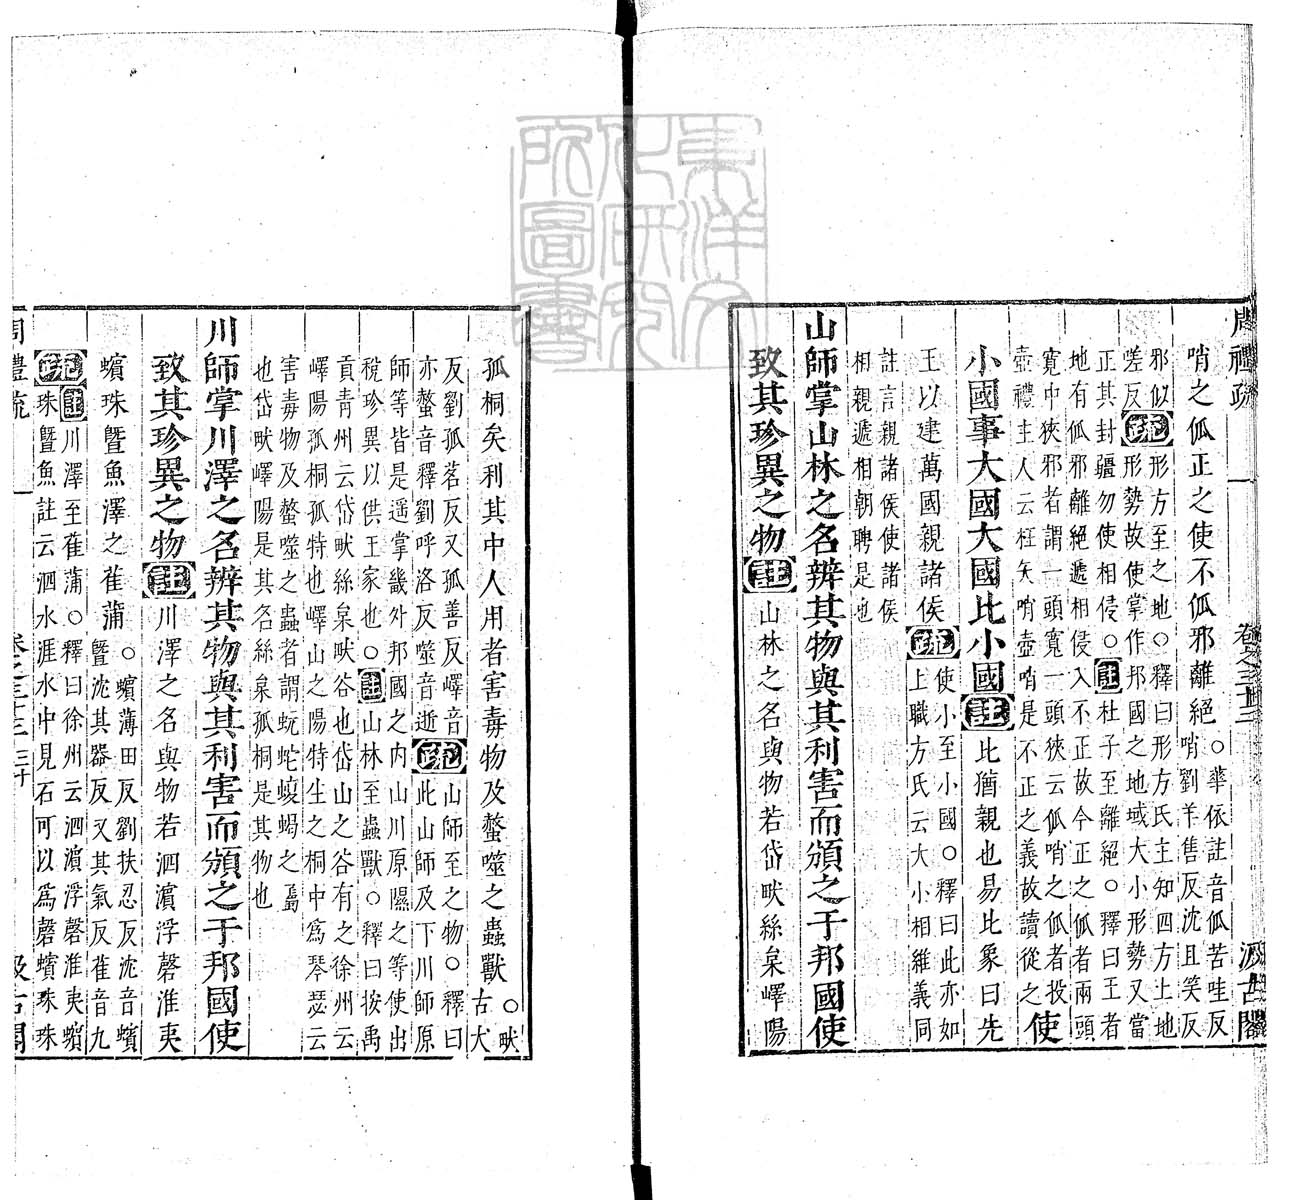 周禮疏
卷之三十三
汲古閣
哨之㼌正之使不㼌邪離絕○華依註音㼌苦哇反
哨劉羊售反沈且笑反
邪似
差反疏形方至之地○釋曰形方氏主知四方土地
形勢故使掌作邦國之地域大小形勢又當
正其封疆勿使相侵○註杜子至離絕○釋曰王者
地有㼌邪離絕遞相侵入不正故今正之㼌者兩頭
寬中狹邪者謂一頭寬一頭狹云㼌哨之㼌者投
壺禮主人云枉矢哨壺哨是不正之義故讀從之使
小國事大國大國比小國註比猶親也易比象曰先
王以建萬國親諸侯疏使小至小國○釋曰此亦如
上職方氏云大小相維義同
註言親諸侯使諸侯
相親遞相朝聘是也
山師掌山林之名辨其物與其利害而頒之于邦國使
致其珍異之物註山林之名與物若岱畎絲枲嶧陽
孤桐矣利其中人用者害毒物及螫噬之蟲獸○畎
古犬
反劉孤茗反又孤善反嶧音
亦螫音釋劉呼洛反噬音逝疏山師至之物○釋曰
此山師及下川師原
師等皆是遥掌畿外邦國之内山川原隰之等使出
稅珍異以供王家也○註山林至蟲獸○釋曰按禹
貢青州云岱畎絲枲畎谷也岱山之谷有之徐州云
嶧陽孤桐孤特也嶧山之陽特生之桐中爲琴瑟云
害毒物及螫噬之蟲者謂蚖蛇蝮蝎之屬
也岱畎嶧陽是其名絲枲孤桐是其物也
川師掌川澤之名辨其物與其利害而頒之于邦國使
致其珍異之物註川澤之名與物若泗濵浮磬淮夷
蠙珠曁魚澤之萑蒲○蠙薄田反劉扶忍反沈音蠙
曁沈其器反又其氣反萑音九
疏註川澤至萑蒲○釋曰徐州云泗濵浮磬淮夷蠙
珠曁魚註云泗水涯水中見石可以爲磬蠙珠珠
周禮疏
卷之三十三
三十
汲古閣